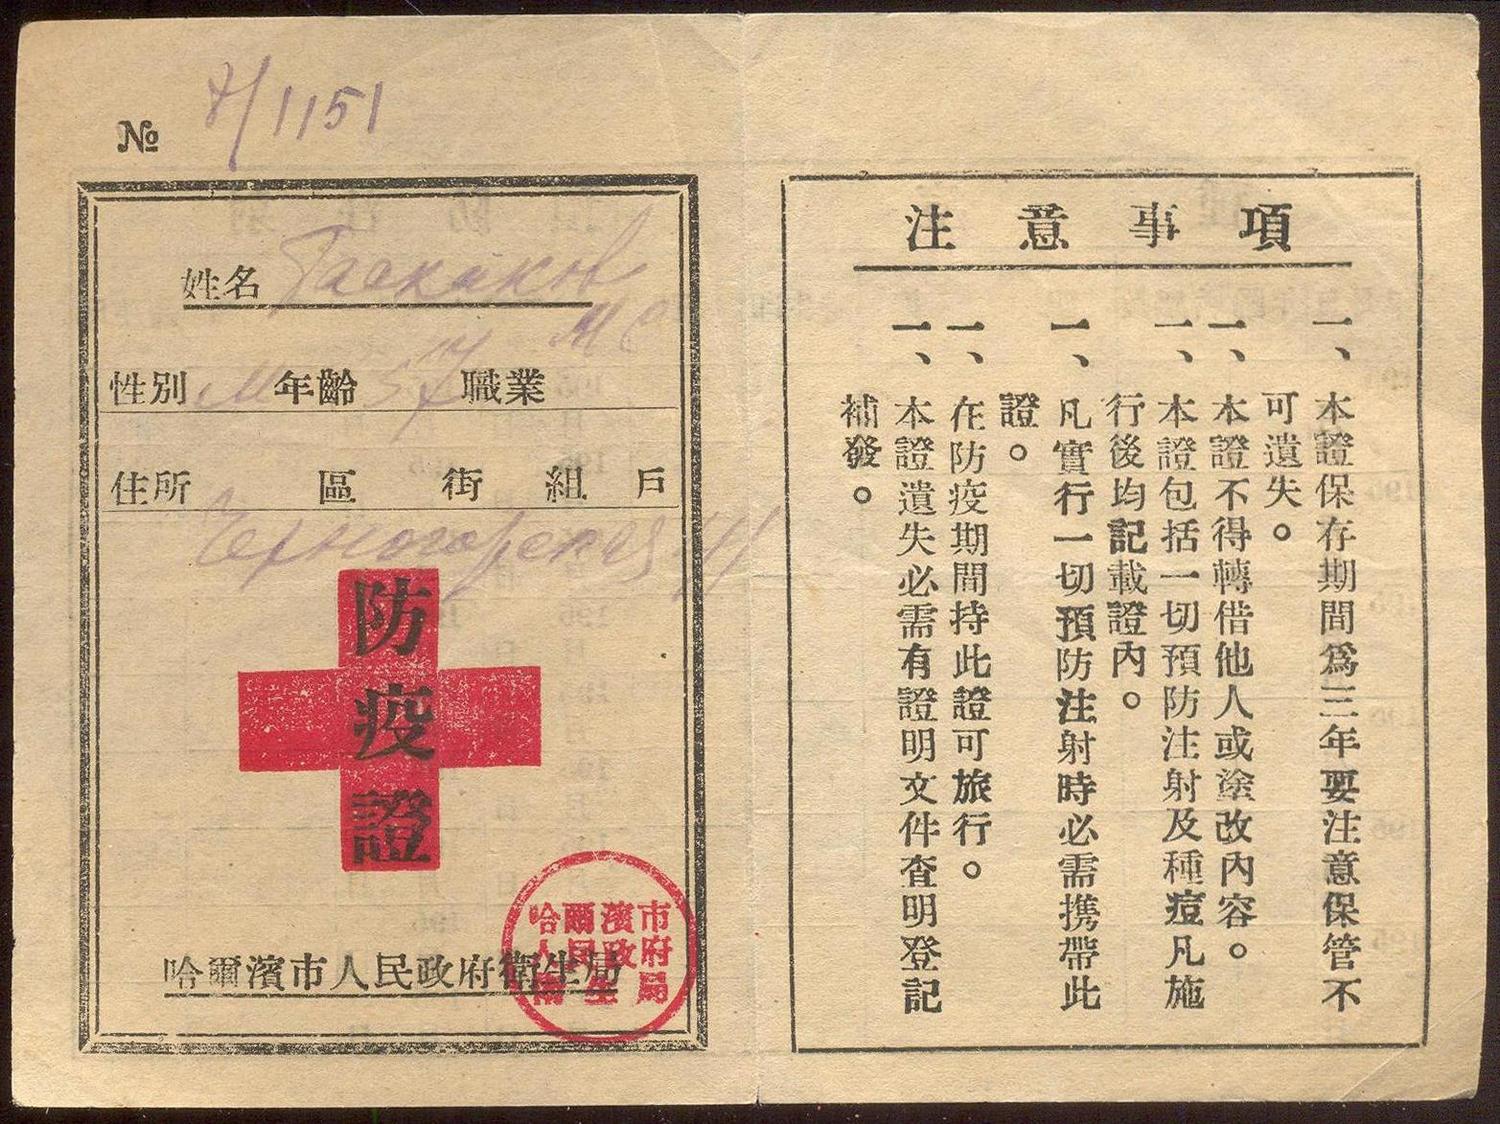 № 8/1151
姓名 Таскаков
М С
性別 М 年齡 57 職業
住所 區 街 組 戶
Черногорская
防疫證
哈爾濱市人民政府衛生局
哈爾濱市
人民政府
衛生局
注意事項
一、本證保存期間爲三年要注意保管不
可遺失。
一、本證不得轉借他人或塗改內容。
一、本證包括一切預防注射及種痘凡施
行後均記載證內。
一、凡實行一切預防注射時必需携帶此
證。
一、在防疫期間持此證可旅行。
一、本證遺失必需有證明文件查明登記
補發。